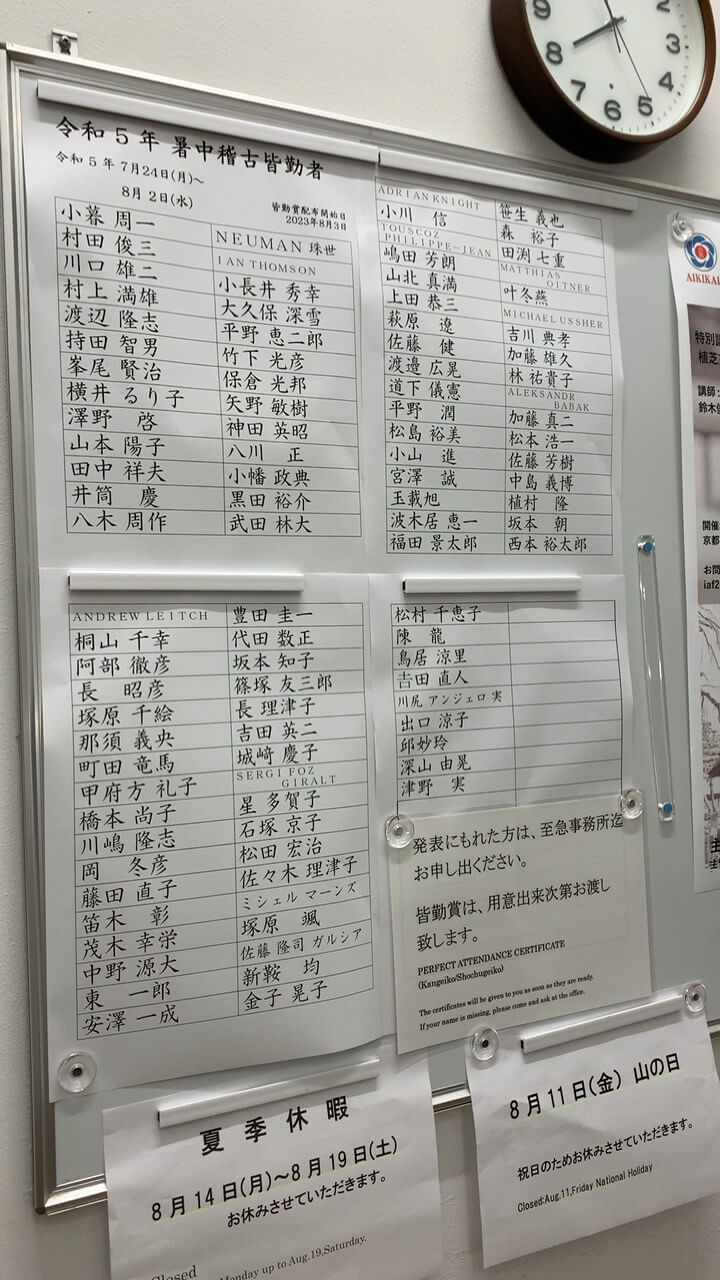 令和5年 暑中稽古皆勤者
令和5年 7月24日(月)~
8月 2日(水)
皆勤賞配布開始日
2023年8月3日
小暮 周一
村田 俊三
川口 雄二
村上 満雄
渡辺 隆志
持田 智男
峯尾 賢治
横井 るり子
澤野 啓
山本 陽子
田中 祥夫
井筒 慶
八木 周作
NEUMAN 珠世
IAN THOMSON
小長井 秀幸
大久保 深雪
平野 恵二郎
竹下 光彦
保倉 光邦
矢野 敏樹
神田 英昭
八川 正
小幡 政典
黒田 裕介
武田 林大
ADRIAN KNIGHT
小川 信
TOUSCOZ
PHILIPPE-JEAN
嶋田 芳朗
山北 真満
上田 恭三
萩原 遼
佐藤 健
渡邉 広晃
道下 儀憲
平野 潤
松島 裕美
小山 進
宮澤 誠
玉載旭
波木居 恵一
福田 景太郎
笹生 義也
森 裕子
田渕 七重
MATTHIAS
OLTNER
叶冬燕
MICHAEL USSHER
吉川 典孝
加藤 雄久
林 祐貴子
ALEKSANDR
BABAK
加藤 真二
松本 浩一
佐藤 芳樹
中島 義博
植村 隆
坂本 朝
西本 裕太郎
ANDREW LEITCH
桐山 千幸
阿部 徹彦
長 昭彦
塚原 千絵
那須 義央
町田 竜馬
甲府方 礼子
橋本 尚子
川嶋 隆志
岡 冬彦
藤田 直子
笛木 彰
茂木 幸栄
中野 源大
東 一郎
安澤 一成
豊田 圭一
代田 数正
坂本 知子
篠塚 友三郎
長 理津子
吉田 英二
城﨑 慶子
SERGI FOZ
GIRALT
星 多賀子
石塚 京子
松田 宏治
佐々木 理津子
ミシェル マーンズ
塚原 颯
佐藤 隆司 ガルシア
新鞍 均
金子 晃子
松村 千恵子
陳 龍
鳥居 涼里
吉田 直人
川尻 アンジェロ 実
出口 涼子
邱妙玲
深山 由晃
津野 実
発表にもれた方は、至急事務所迄
お申し出ください。
皆勤賞は、用意出来次第お渡し
致します。
PERFECT ATTENDANCE CERTIFICATE
(Kangeiko/Shochugeiko)
The certificates will be given to you as soon as they are ready.
If your name is missing, please come and ask at the office.
夏季休暇
8月14日(月)~8月19日(土)
お休みさせていただきます。
Closed
Monday up to Aug.19,Saturday.
8月11日(金) 山の日
祝日のためお休みさせていただきます。
Closed:Aug.11,Friday National Holiday
9
8
7
6
5
4
3
2
AIKIKAI
特別
植芝
講師:
鈴木
開催
京都
お問
iaf2